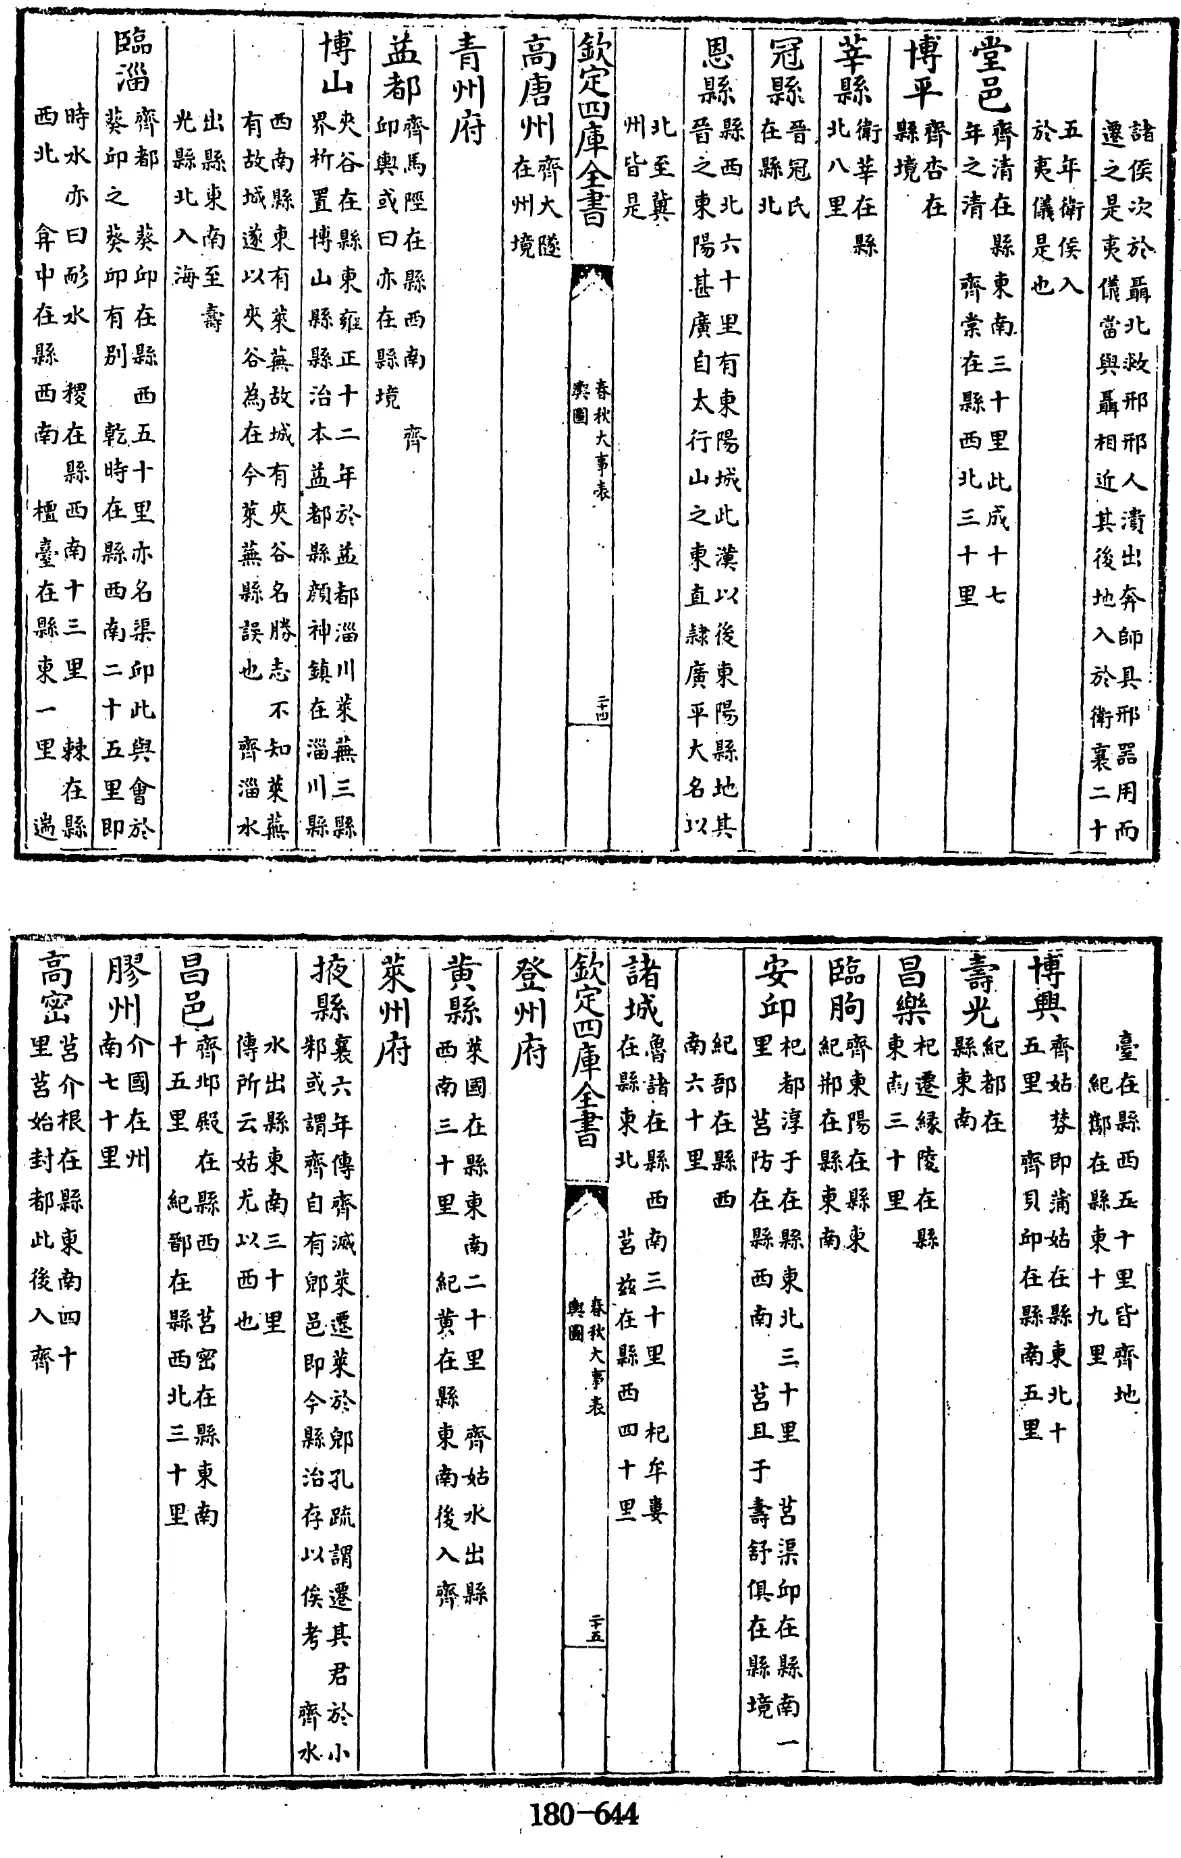 諸侯次於聶北救邢邢人潰出奔師具邢器用而
遷之是夷儀當與聶相近其後地入於衛襄二十
五年衛侯入
於夷儀是也
堂邑 齊清在縣東南三十里此成十七
年之清 齊棠在縣西北三十里
博平 齊杏在
縣境
莘縣 衛莘在縣
北八里
冠縣 晉冠氏
在縣北
恩縣 縣西北六十里有東陽城此漢以後東陽縣地其
晉之東陽甚廣自太行山之東直隸廣平大名以
北至冀
州皆是
欽定四庫全書
春秋大事表
輿圖
二十四
高唐州 齊大隧
在州境
青州府
益都 齊馬陘在縣西南 齊
邱輿或曰亦在縣境
博山 夾谷在縣東雍正十二年於益都淄川萊蕪三縣
界析置博山縣縣治本益都縣顏神鎮在淄川縣
西南縣東有萊蕪故城有夾谷名勝志不知萊蕪
有故城遂以夾谷為在今萊蕪縣誤也 齊淄水
出縣東南至壽
光縣北入海
臨淄 齊都 葵邱在縣西五十里亦名渠邱此與會於
葵邱之葵邱有別 乾時在縣西南二十五里即
時水亦曰耏水 稷在縣西南十三里 棘在縣
西北 弇中在縣西南 檀臺在縣東一里 遄
臺在縣西五十里皆齊地
紀酅在縣東十九里
博興 齊姑棼即蒲姑在縣東北十
五里 齊貝邱在縣南五里
壽光 紀都在
縣東南
昌樂 杞遷緣陵在縣
東南三十里
臨朐 齊東陽在縣東
紀郱在縣東南
安邱 杞都淳于在縣東北三十里 莒渠邱在縣南一
里 莒防在縣西南 莒且于壽舒俱在縣境
紀郚在縣西
南六十里
諸城 魯諸在縣西南三十里 杞牟婁
在縣東北 莒茲在縣西四十里
欽定四庫全書
春秋大事表
輿圖
二十五
登州府
黄縣 萊國在縣東南二十里 齊姑水出縣
西南三十里 紀黄在縣東南後入齊
萊州府
掖縣 襄六年傳齊滅萊遷萊於郳孔疏謂遷其君於小
邾或謂齊自有郳邑即今縣治存以俟考 齊水
水出縣東南三十里
傳所云姑尤以西也
昌邑 齊邶殿在縣西 莒密在縣東南
十五里 紀鄑在縣西北三十里
膠州 介國在州
南七十里
高密 莒介根在縣東南四十
里莒始封都此後入齊
180-644